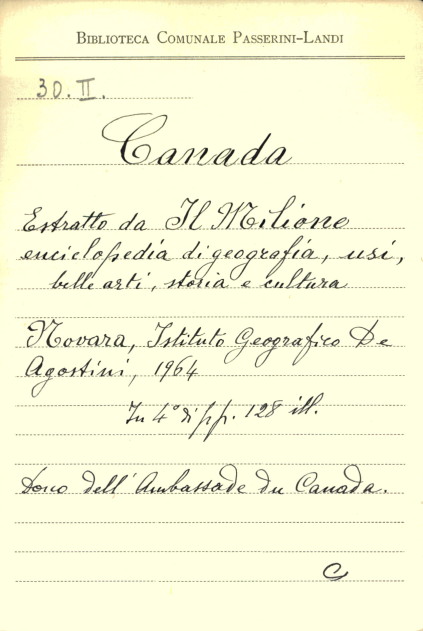 BIBLIOTECA COMUNALE PASSERINI-LANDI
30. II.
Canada
Estratto da Il Milione
enciclopedia di geografia, usi,
belle arti, storia e cultura
Novara, Istituto Geografico De
Agostini, 1964
In 4° di pp. 128 ill.
Dono dell'Ambassade du Canada.
C